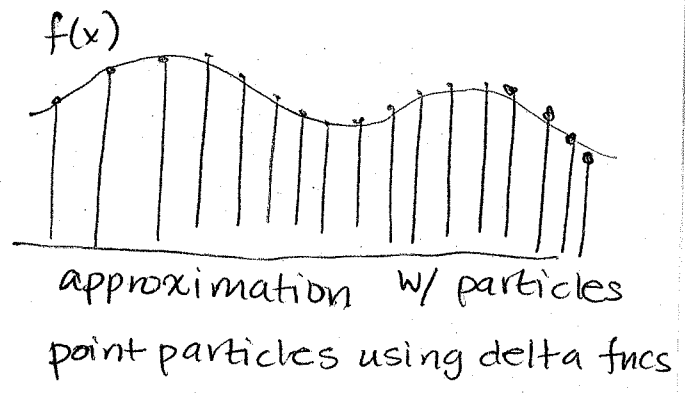 f(x)
approximation w/ particles
point particles using delta fncs